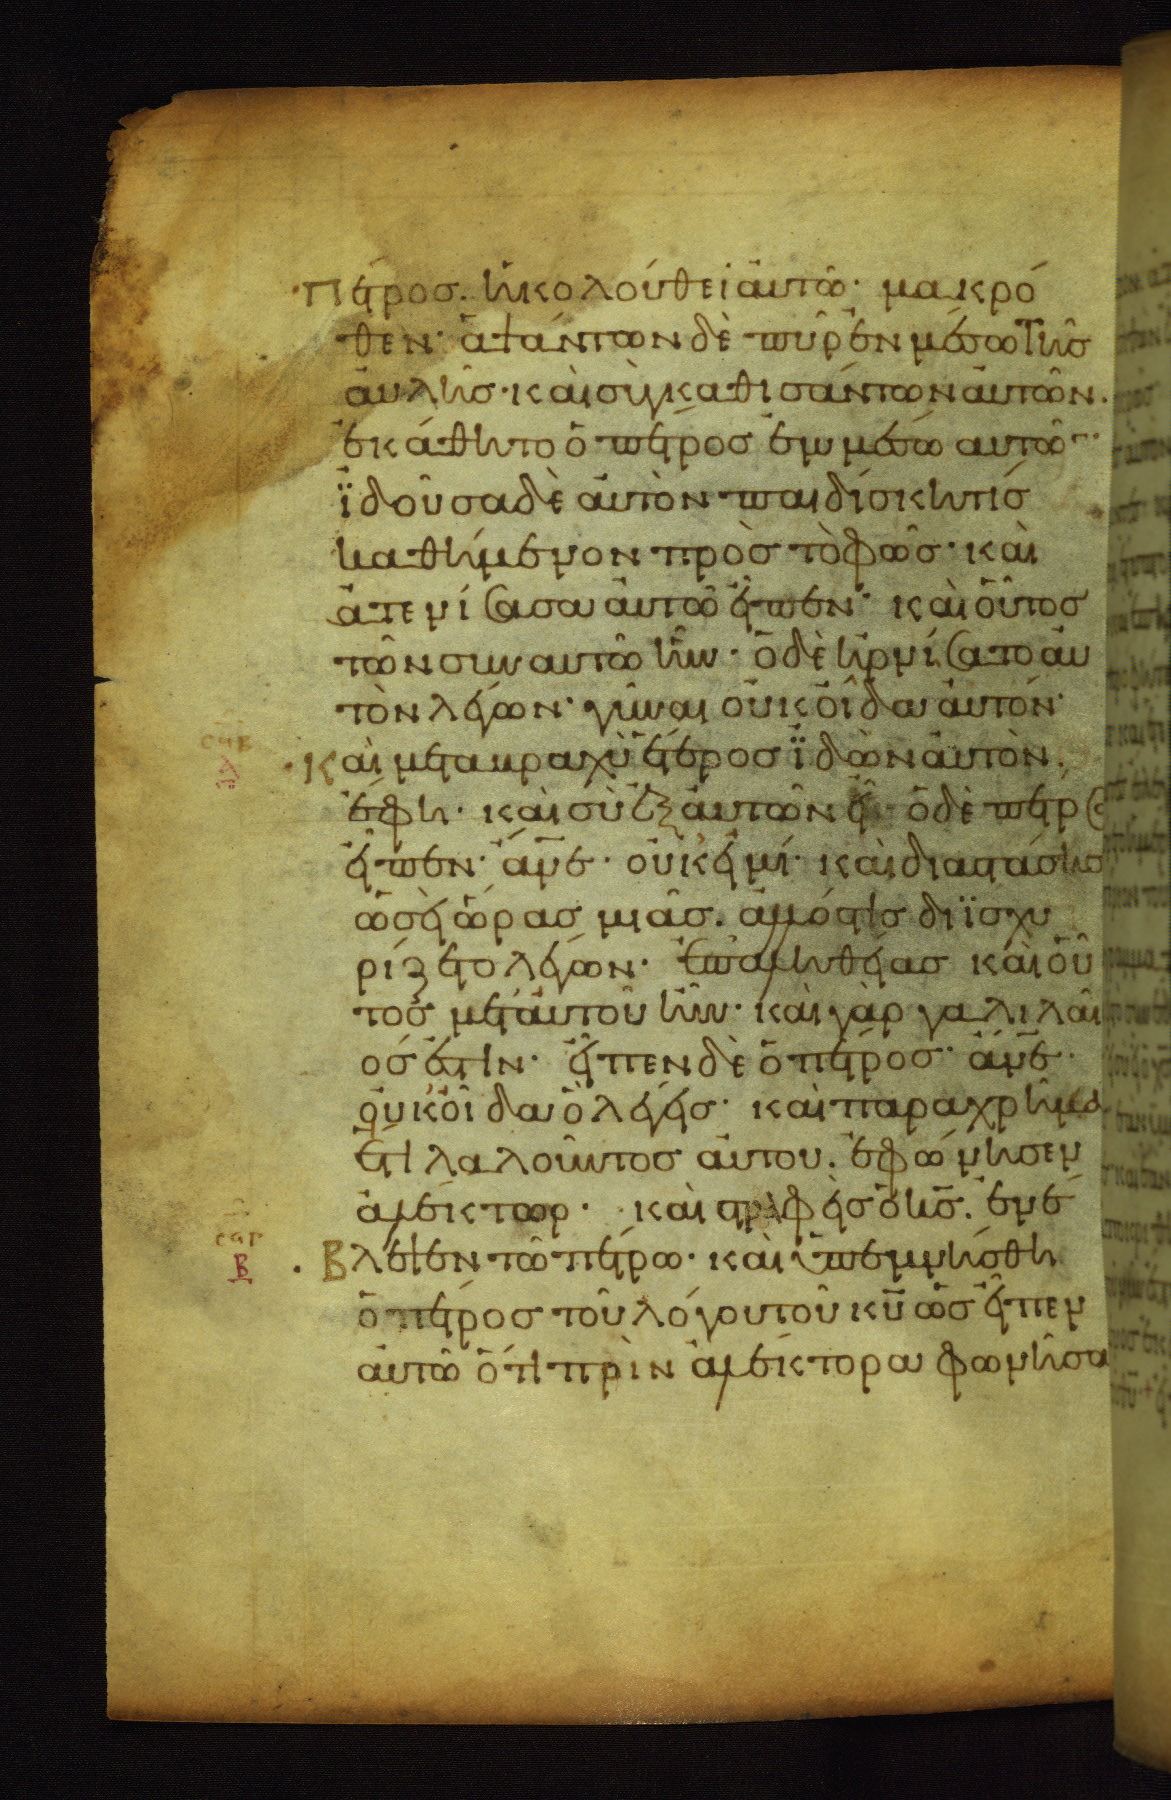 Πέτρος. ἠκολούθει αὐτῶ· μακρό
θεν· ἁψάντων δὲ πῦρ ἐν μέσω τῆς
αὐλῆς· καὶ συγκαθισάντων αὐτῶν.
ἐκάθητο ὁ πέτρος ἐν μέσω αὐτῶ
ἰδοῦσα δὲ αὐτὸν παιδίσκη τίς
καθήμενον πρὸς τὸ φῶς· καὶ
ἀτενίσασα αὐτῶ εἶπεν· καὶ οὗτος
τῶν συν αυτῶ ἦν· ὁ δὲ ἠρνίσατο αὐ
τὸν λέγων· γύναι οὐκ οἶδα αὐτόν·
σαβ
λ
Καὶ μετα βραχὺ ἕτερος ἰδὼν αὐτὸν.
ἔφη· καὶ σὺ ἐξ αὐτῶν εἶ· ὁ δὲ πετρο
εἶπεν· ἄνε· οὐκ εἰμί· καὶ διαστάσης
ὡσεὶ ὥρας μιᾶς. ἄλλός τις διϊσχυ
ρίζετο λέγων· ἐπ αληθείας καὶ οὗ
τος μετ αὐτοῦ ἦν· καὶ γὰρ γαλιλαῖ
ός ἐστιν· εἶπεν δὲ ὁ πέτρος· ἄνε·
οὐκ οἶδα ὃ λέγεις· καὶ παραχρῆμα
ἔτι λαλοῦντος αὐτου. ἐφώνησεν
ἀλέκτωρ· καὶ στραφεὶς ὁ ις. ἐνέ
Βλεψεν τῶ πέτρω· καὶ ὑπεμνήσθη
ὁ πέτρος τοῦ λόγου τοῦ κυ ὡς εἶπεν
αὐτῶ ὅτι πρὶν ἀλέκτορα φωνῆσα